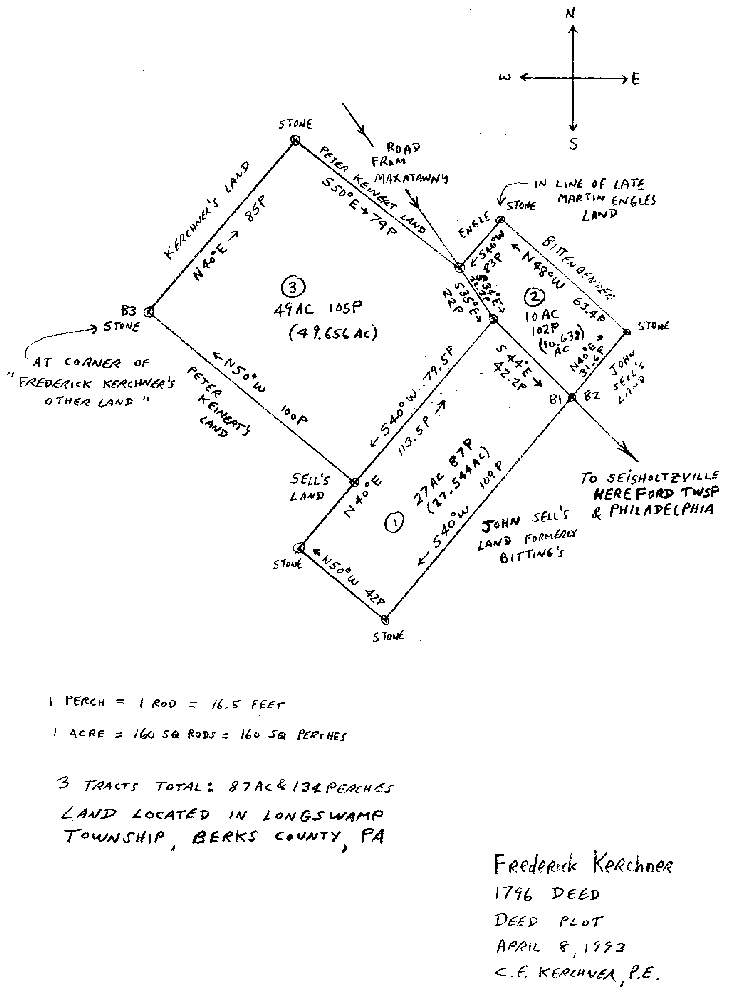 N
W E
S
STONE
ROAD
FROM
MAXATAWNY
KERCHNER'S LAND
N40°E → 85P
PETER KEINERT LAND
S50°E → 79P
IN LINE OF LATE
MARTIN ENGLES
LAND
STONE
ENGLE
← S40°W
23P
BITTENBENDER
← N48°W 63.4P
S35°E →
22P
2
10 AC
102P
(10.638)
AC
N40°E →
31.6P
STONE
JOHN
SELL'S
LAND
3
49AC 105P
(49.656 AC)
B3
STONE
AT CORNER OF
"FREDERICK KERCHNER'S
OTHER LAND"
← N50°W 100P
PETER
KEINERT'S
LAND
← S40°W 79.5P
S44°E →
42.2P
B1 B2
TO SEISHOLTZVILLE
HEREFORD TWSP
& PHILADELPHIA
SELL'S
LAND
N40°E 113.5P →
1
27AC 87P
(27.544AC)
← S40°W 109P
JOHN SELL'S
LAND FORMERLY
BITTING'S
STONE
← N50°W 42P
STONE
1 PERCH = 1 ROD = 16.5 FEET
1 ACRE = 160 SQ RODS = 160 SQ PERCHES
3 TRACTS TOTAL: 87AC & 134 PERCHES
LAND LOCATED IN LONGSWAMP
TOWNSHIP, BERKS COUNTY, PA
Frederick Kerchner
1796 DEED
DEED PLOT
APRIL 8, 1993
C.F. KERCHNER, P.E.